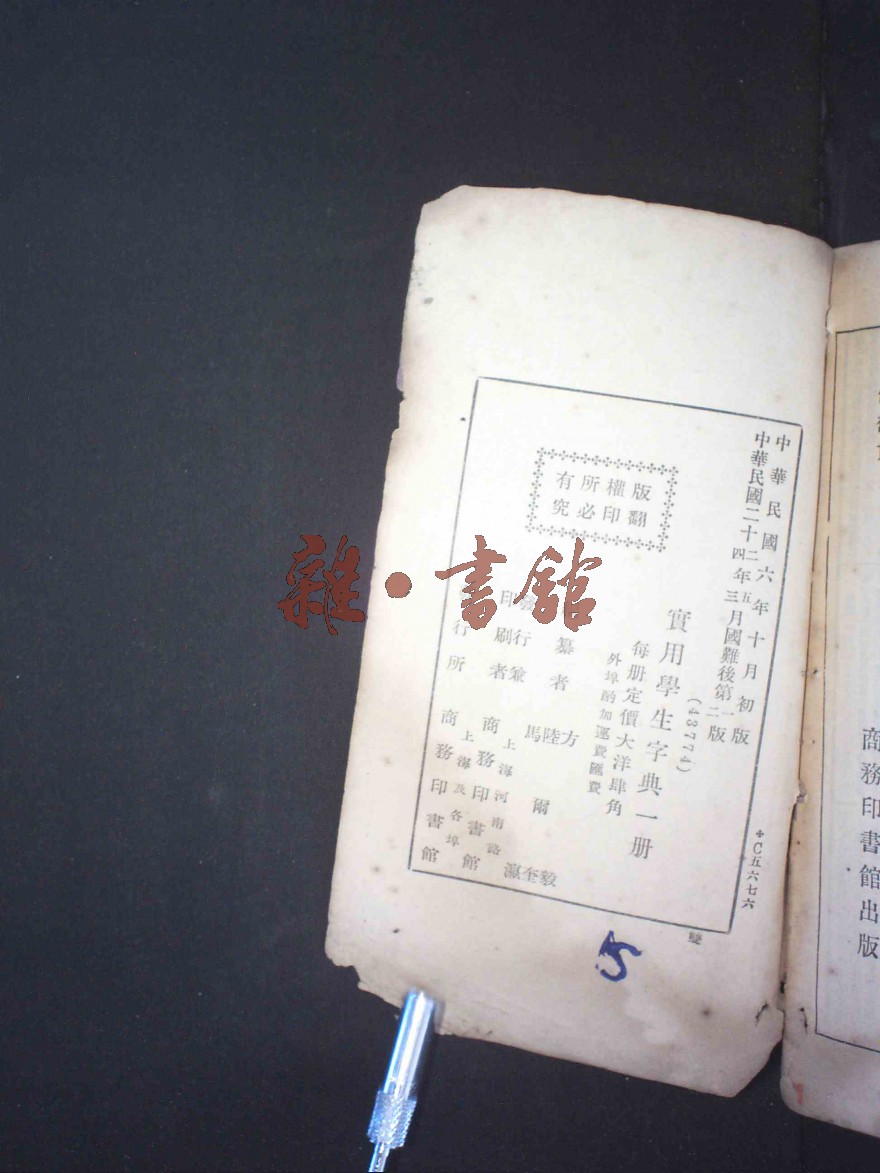 中華民國六年十月初版
中華民國二十二年五月國難後第一版
中華民國二十四年三月國難後第二版
(43774)
實用學生字典一册
每册定價大洋肆角
外埠酌加運費匯費
版權所有
翻印必究
纂者
方毅
陸爾奎
馬瀛
發行兼印刷者
上海河南路
商務印書館
行所
上海及各埠
商務印書館
C五六七六
5
雜·書館
商務印書館出版